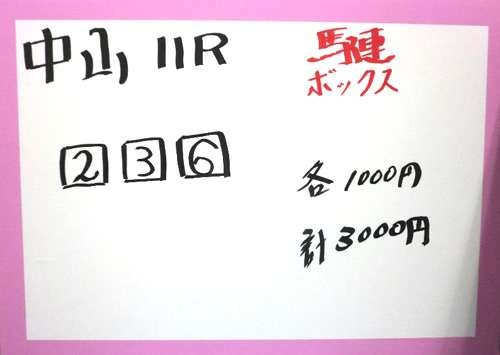 中山 11R
馬連
ボックス
2 3 6
各1000円
計3000円